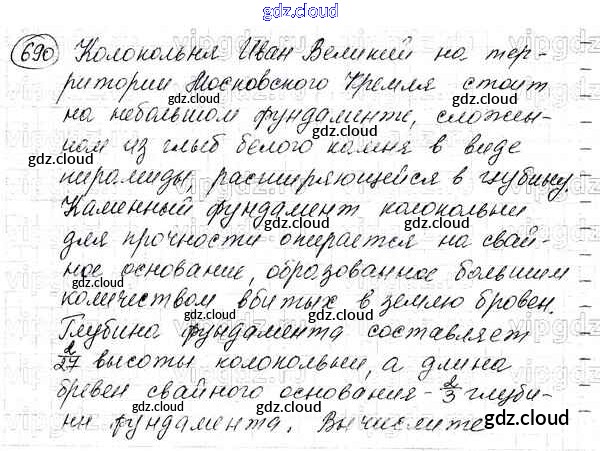 gdz.cloud
690 Колокольня Иван Великий на тер-
ритории Московского Кремля стоит
на небольшом фундаменте, сложен-
ном из глыб белого камня в виде
пирамиды, расширяющейся в глубину.
Каменный фундамент колокольни
для прочности опирается на свай-
ное основание, образованное большим
количеством вбитых в землю бревен.
Глубина фундамента составляет
2/27 высоты колокольни, а длина
бревен свайного основания - 2/3 глуби-
ны фундамента. Вычислите
gdz.cloud